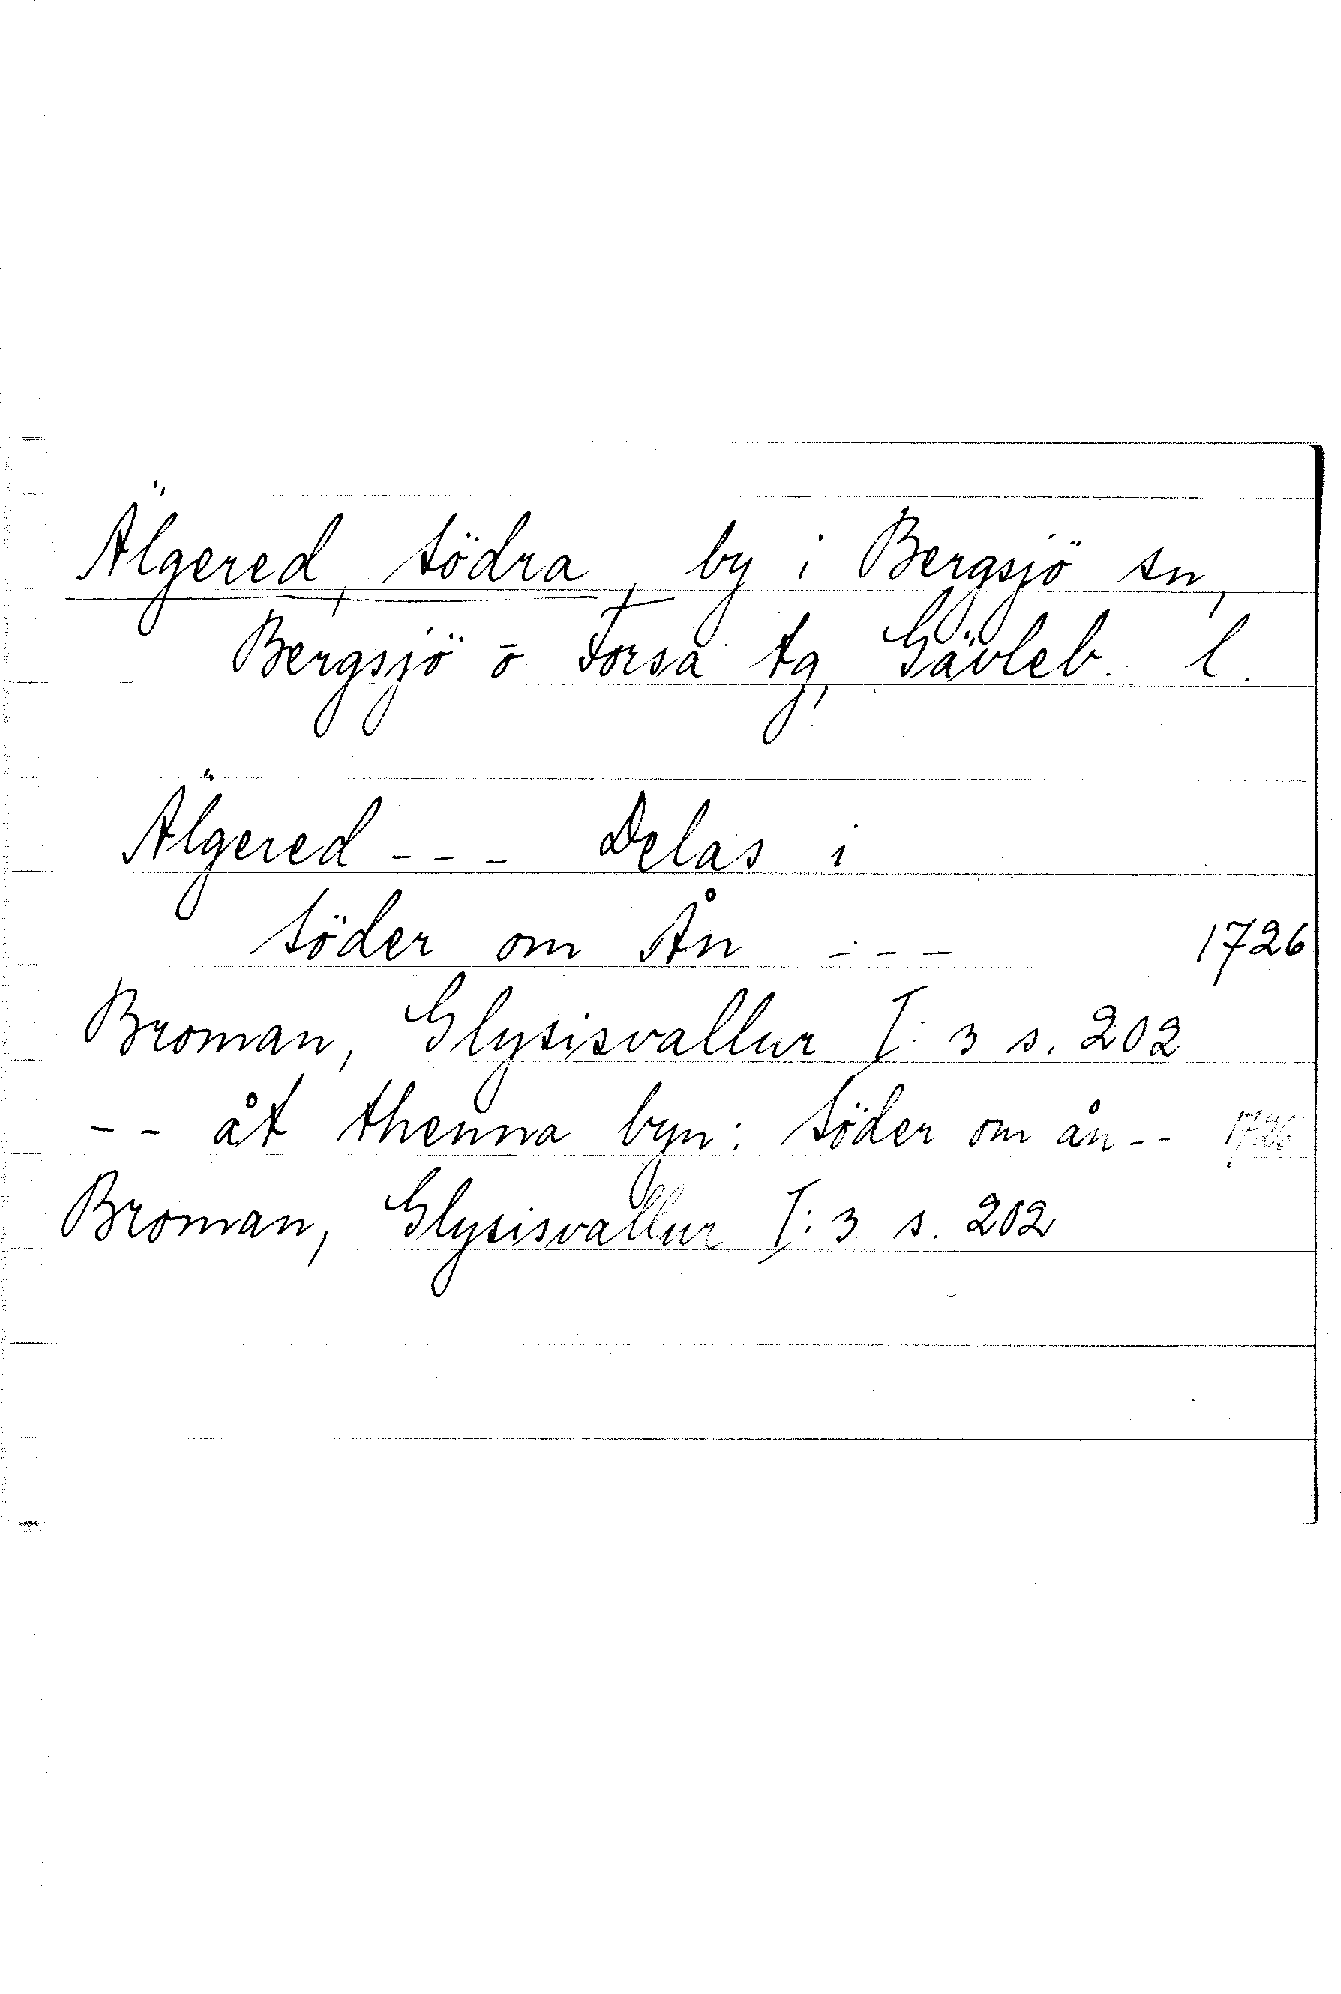 Älgered, Södra, by i Bergsjö sn,
Bergsjö o Forsa tg, Gävleb. l.
Älgered --- Delas i
Söder om Ån --- 1726
Broman, Glysisvallur I:3 s. 202
-- åt thenna byn: Söder om ån -- 1726
Broman, Glysisvallur I:3 s. 202